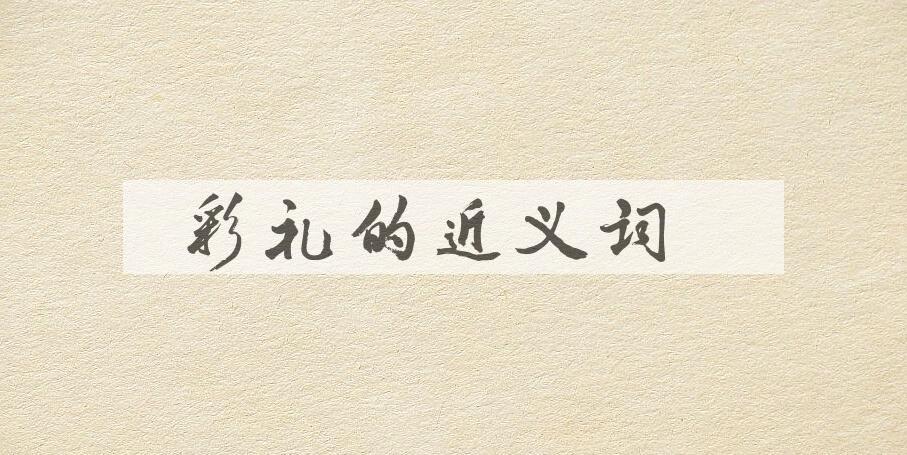 彩礼的近义词